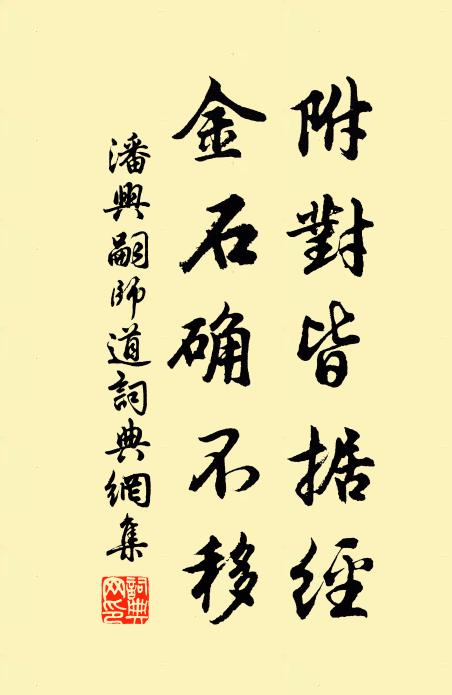 附對皆据經
金石确不移
潘興嗣師道詞典網集
詞典網印